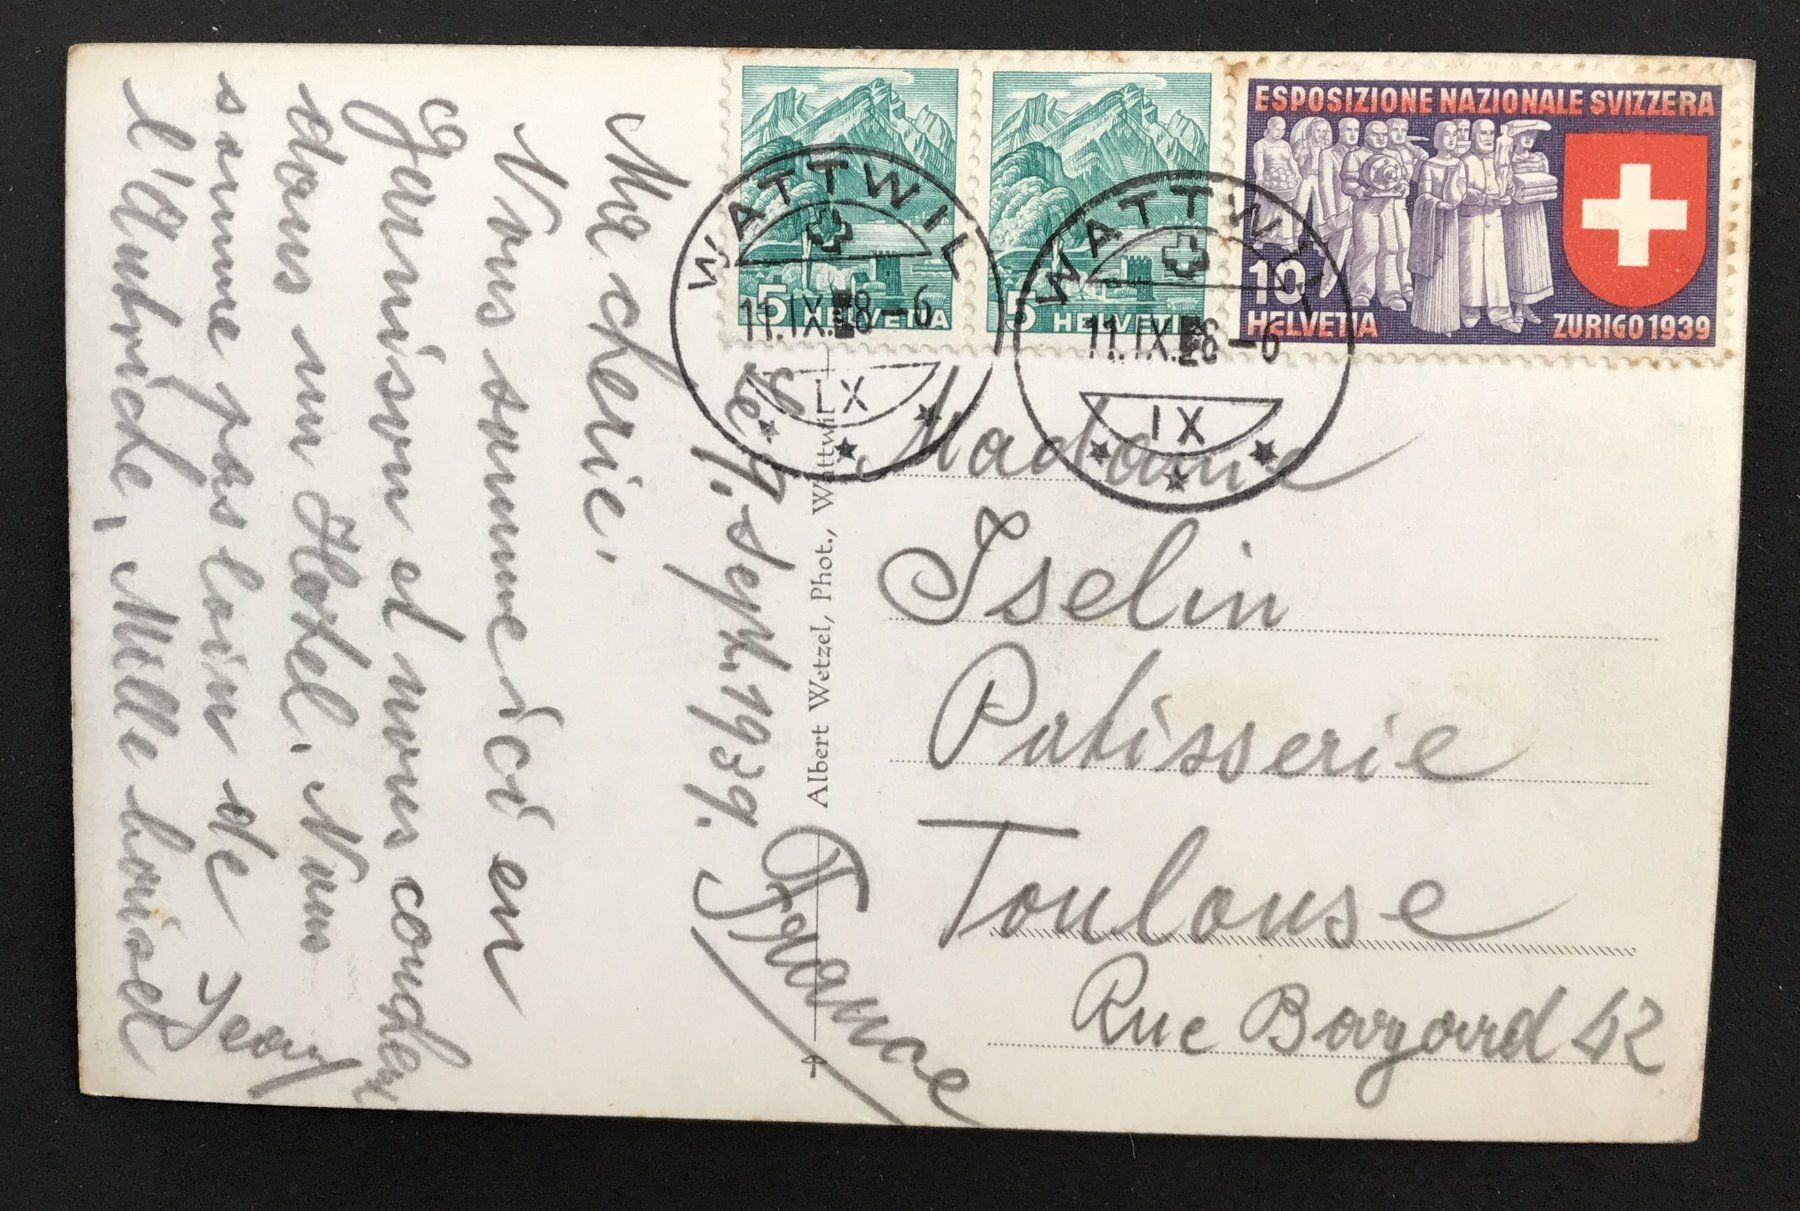 ESPOSIZIONE NAZIONALE SVIZZERA
10
HELVETIA
ZURIGO 1939
5 HELVETIA
5 HELVETIA
WATTWIL
11.IX. 8-6
IX
WATTWIL
11.IX. 8-6
IX
Le 9. Sept. 1939.
Ma cherie,
Nous somme ici en
garnison et nous
dans un Hotel. Nous
somme pas loin de
l'Autriche, Mille baiser
Jean
Albert Wetzel, Phot., Wattwil
Madame
Iselin
Patisserie
Toulouse
Rue Bayard 42
France